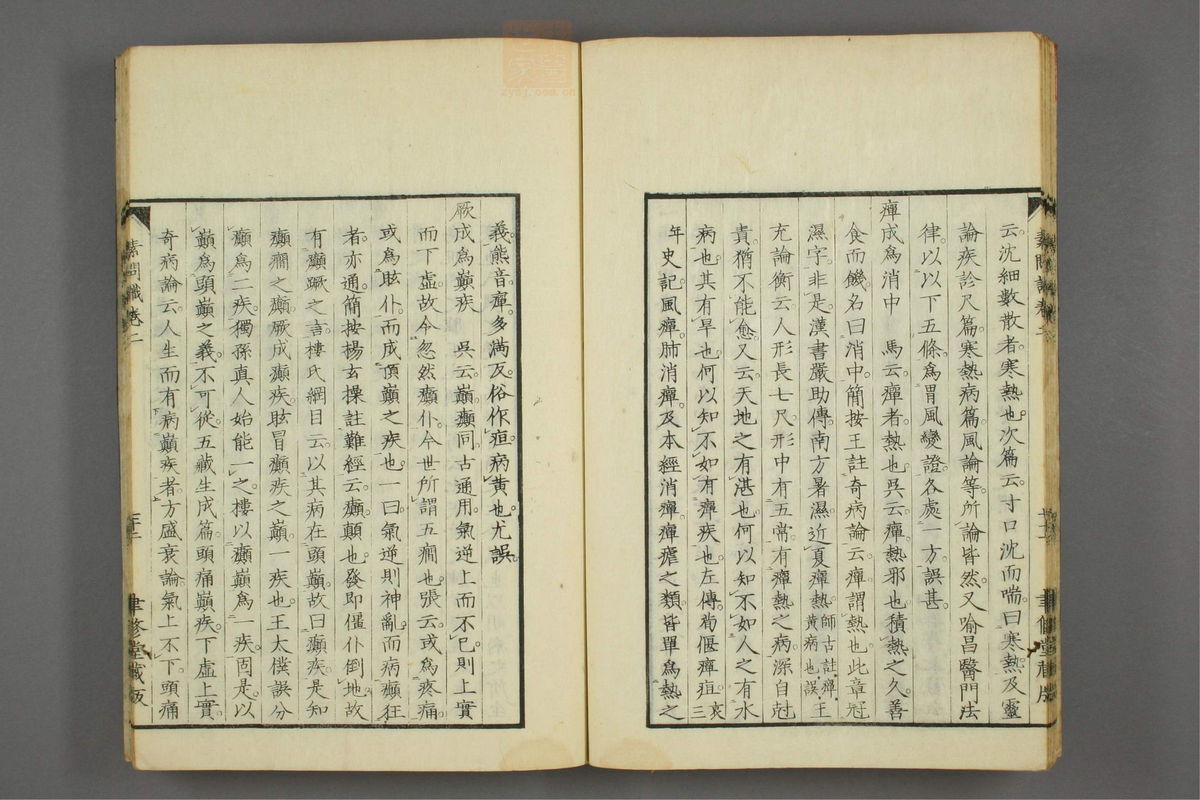 云沈細數散者寒熱也次篇云寸口沈而喘曰寒熱及靈
論疾診尺篇寒熱病篇風論等所論皆然又喻昌醫門法
律以以下五條爲胃風變證各處一方誤甚
癉成爲消中 馬云癉者熱也吳云癉熱邪也積熱之久善
食而饑名曰消中簡按王註奇病論云癉謂熱也此章冠
濕字非是漢書嚴助傳南方暑濕近夏癉熱師古註癉黃病也誤王
充論衡云人形長七尺形中有五常有癉熱之病深自尅
責猶不能愈又云天地之有湛也何以知不如人之有水
病也其有旱也何以知不如有癉疾也左傳荀偃癉疽哀三
年史記風癉肺消癉及本經消癉癉瘧之類皆單爲熱之
義熊音癉多滿反俗作疸病黃也尤誤
厥成爲巔疾 吳云巔癲同古通用氣逆上而不已則上實
而下虛故令忽然癲仆今世所謂五癇也張云或爲疼痛
或爲眩仆而成頂巔之疾也一曰氣逆則神亂而病癲狂
者亦通簡按楊玄操註難經云癲顛也發即僵仆倒地故
有癲蹶之言樓氏綱目云以其病在頭巔故曰癲疾是知
癲癇之癲厥成癲疾眩冒癲疾之巔一疾也王太僕誤分
癲爲二疾獨孫眞人始能一之樓以癲巔爲一疾固是以
巔爲頭巔之義不可從五藏生成篇頭痛巔疾下虛上實
奇病論云人生而有病巔疾者方盛衰論氣上不下頭痛
素問識卷二
聿修堂藏版